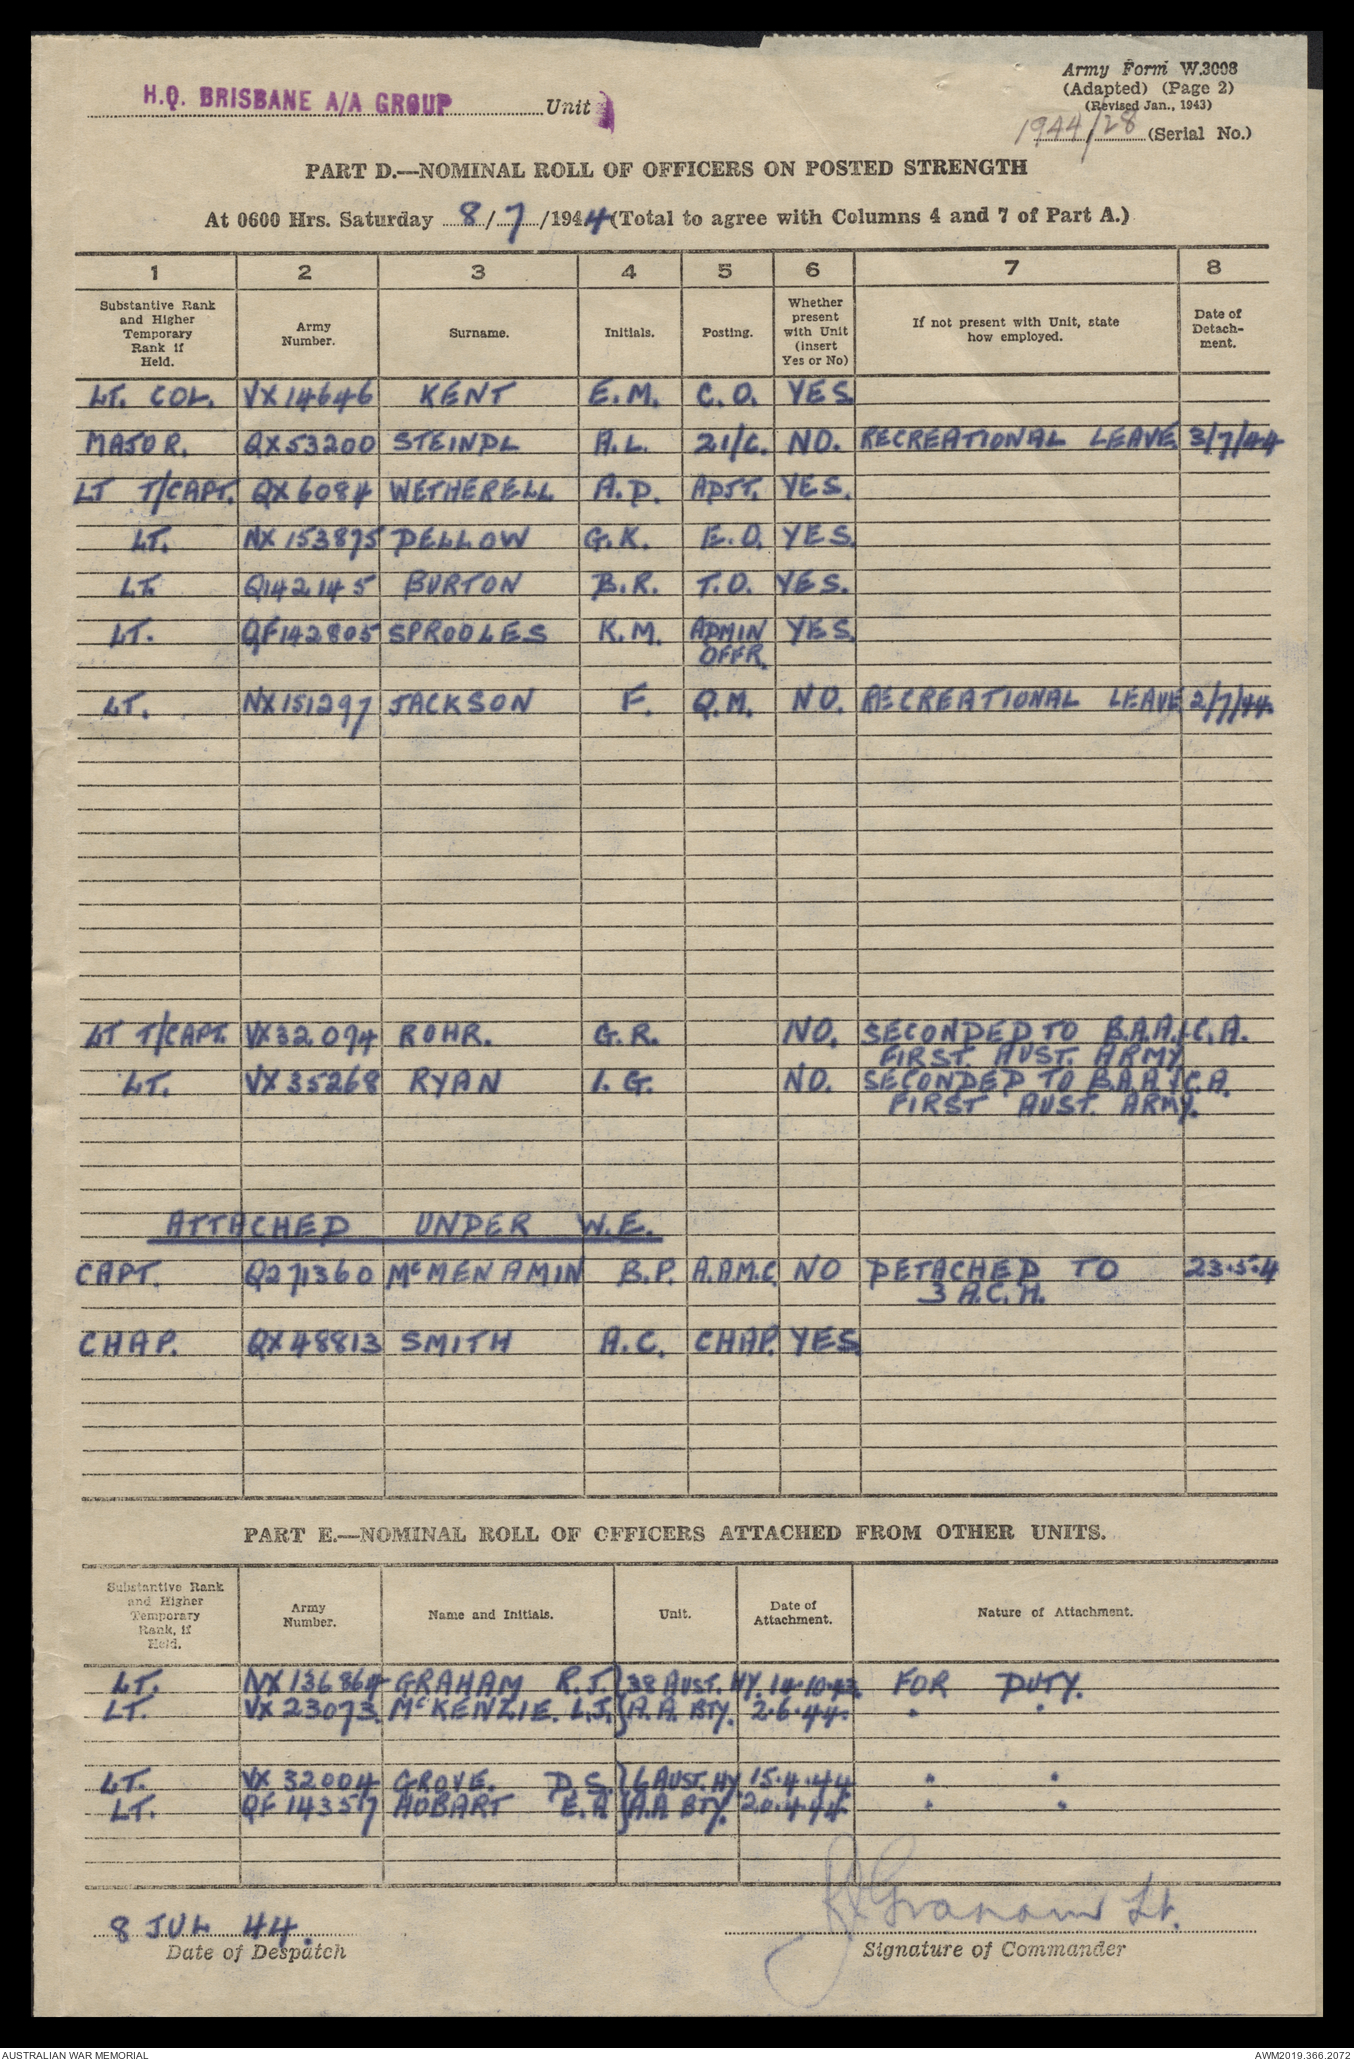 H.Q. BRISBANE A/A GROUP Unit
Army Form W.3008
(Adapted) (Page 2)
(Revised Jan., 1943)
1944/28 (Serial No.)
PART D.—NOMINAL ROLL OF OFFICERS ON POSTED STRENGTH
At 0600 Hrs. Saturday 8/7/1944 (Total to agree with Columns 4 and 7 of Part A.)
1 2 3 4 5 6 7 8
Substantive Rank and Higher Temporary Rank if Held. Army Number. Surname. Initials. Posting. Whether present with Unit (insert Yes or No) If not present with Unit, state how employed. Date of Detach-ment.
LT. COL. VX14646 KENT E.M. C.O. YES.
MAJOR. QX53200 STEINDL A.L. 2I/C. NO. RECREATIONAL LEAVE 3/7/44
LT T/CAPT. QX6084 WETHERELL A.D. ADJT. YES.
LT. NX153875 DELLOW G.K. E.O. YES.
LT. Q142145 BURTON B.R. T.O. YES.
LT. QF142805 SPROOLES K.M. ADMIN YES.
OFFR.
LT. NX151297 JACKSON F. Q.M. NO. RECREATIONAL LEAVE 2/7/44.
LT T/CAPT. VX32074 ROHR. G.R. NO. SECONDED TO B.A.A. & C.A.
FIRST AUST. ARMY
LT. VX35268 RYAN I.G. NO. SECONDED TO B.A.A. & C.A.
FIRST AUST. ARMY.
ATTACHED UNDER W.E.
CAPT. Q271360 McMENAMIN B.P. A.A.M.C. NO DETACHED TO 23.5.4
3 A.C.H.
CHAP. QX48813 SMITH A.C. CHAP. YES.
PART E.—NOMINAL ROLL OF OFFICERS ATTACHED FROM OTHER UNITS.
Substantive Rank and Higher Temporary Rank, if Held. Army Number. Name and Initials. Unit. Date of Attachment. Nature of Attachment.
LT. NX136864 GRAHAM R.J. } 38 AUST. HY. 14.10.43. FOR DUTY.
LT. VX23073 McKENZIE. L.J. } A.A. BTY. 2.6.44. " "
LT. VX 32004 GROVE. D.S. } 6 AUST. HY 15.4.44 " "
LT. QF 14357 HOBART E.A } A.A BTY. 20.4.44. " "
8 JUL 44.
Date of Despatch
RJGraham Lt.
Signature of Commander
AUSTRALIAN WAR MEMORIAL
AWM2019.366.2072